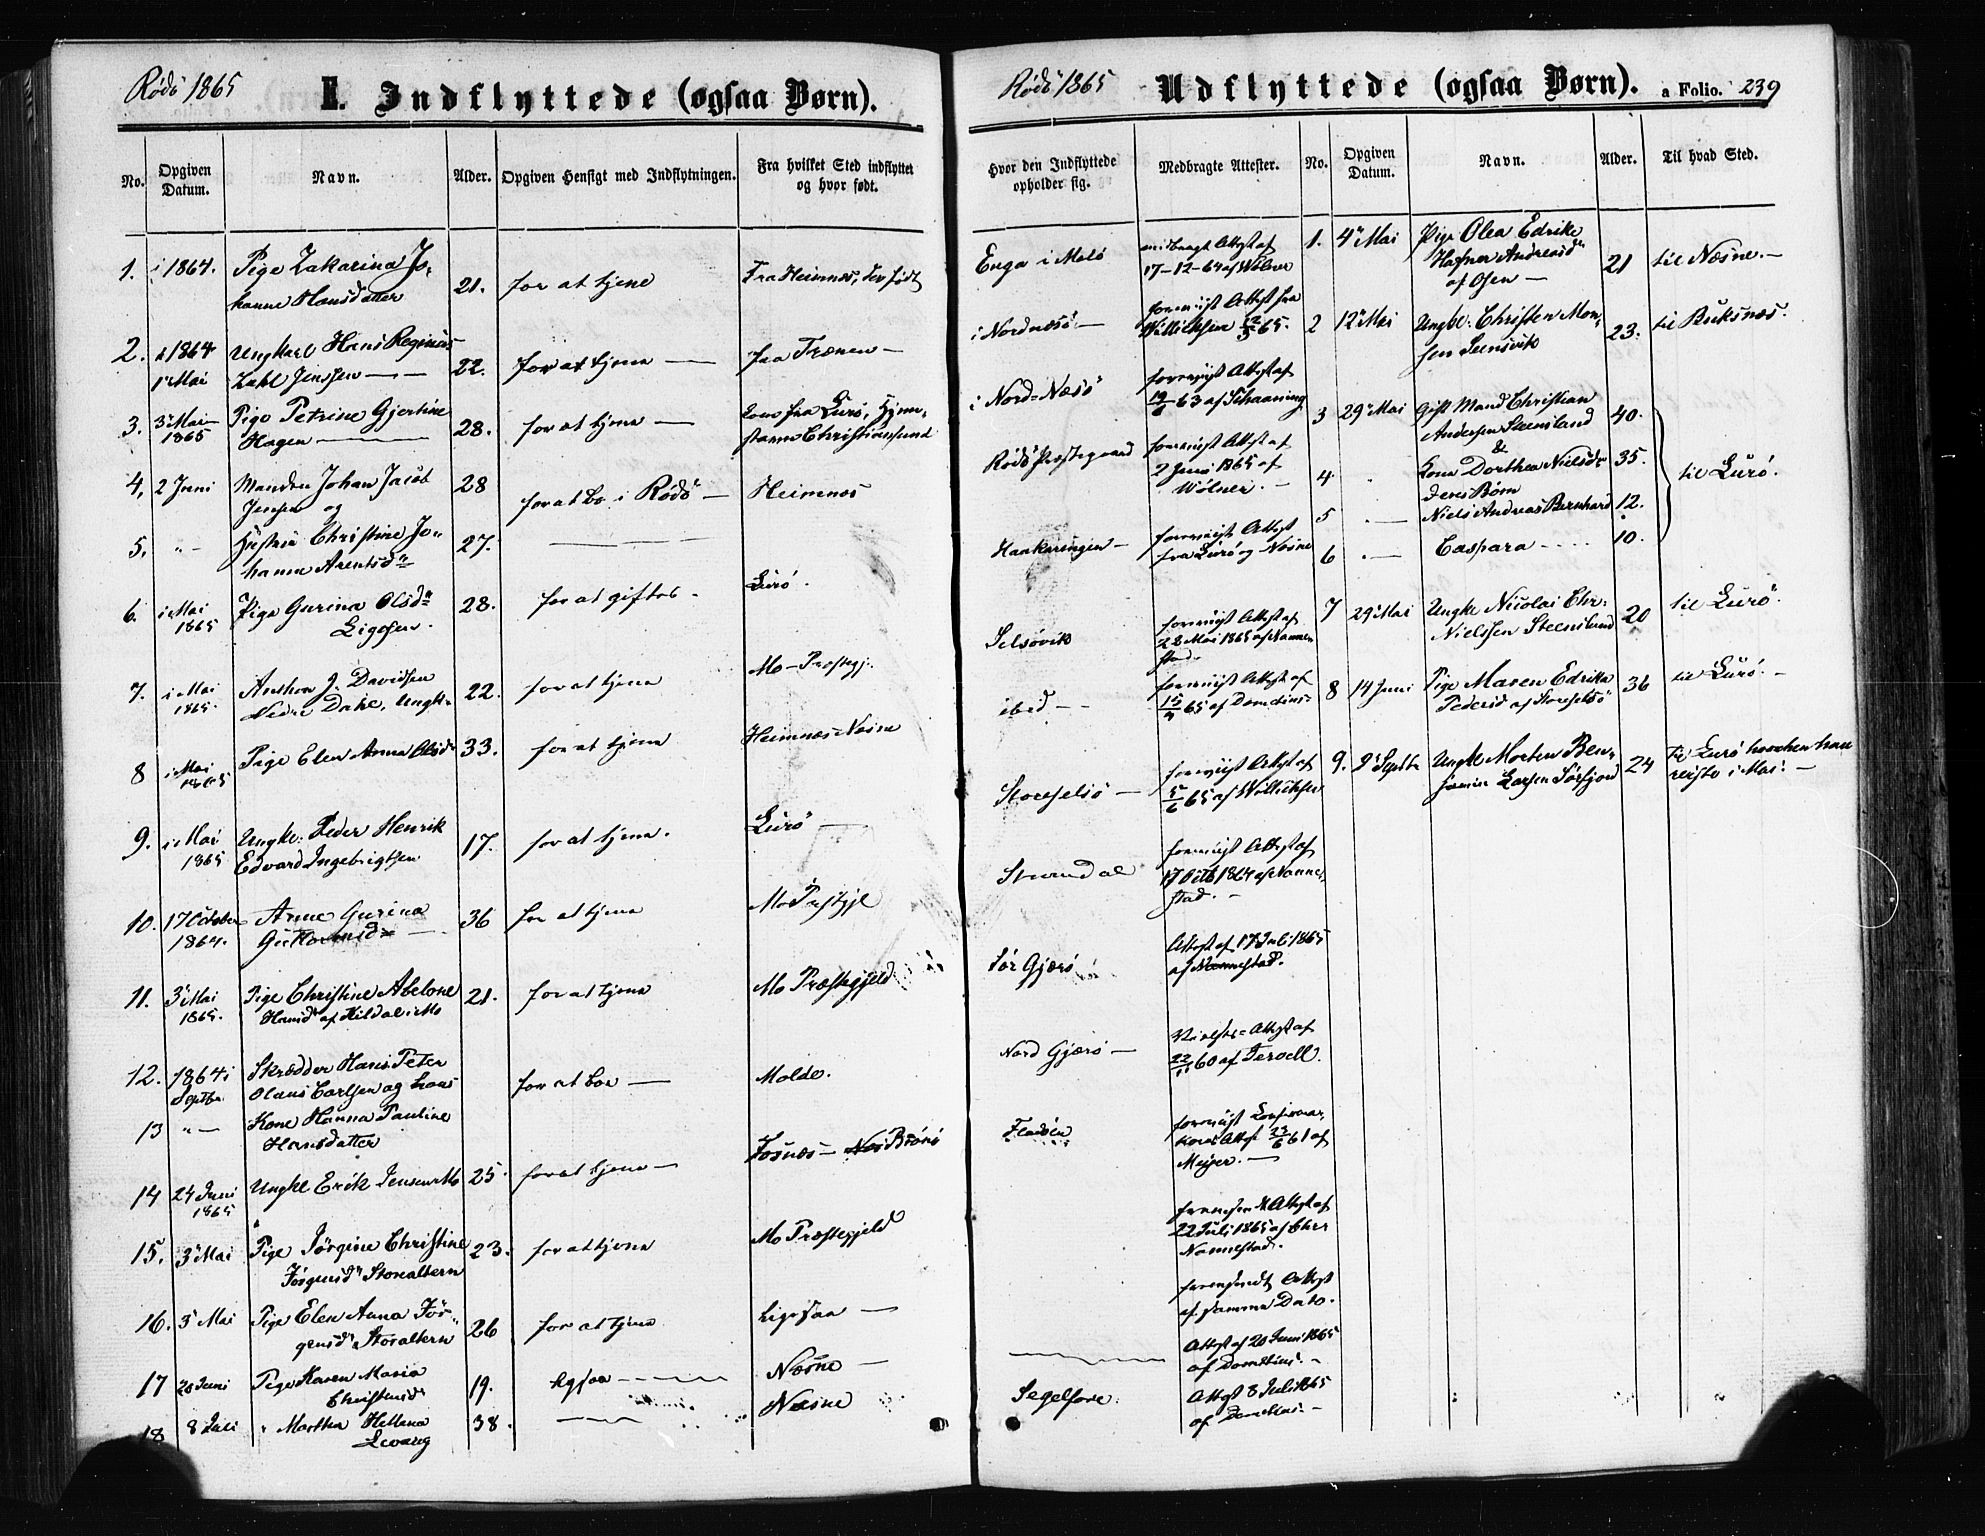 Rödö 1865
I. Indflyttede (ogsaa Børn).
No.
Opgiven Datum.
Navn.
Alder.
Opgiven Hensigt med Indflytningen.
Fra hvilket Sted indflyttet og hvor født.
1. i 1864. Pige Zakarina Jo- 21. for at tjene Fra Heimnæs, der født
hanne Hansdatter
2. 1864 Ungkarl Hans Reginus 22. for at tjene — fra Trænen —
1 Mai Zahl Jenssen —
3. 3 Mai 1865 Pige Petrine Gjertine 28. for at tjene — Lurö,
Hagen — Christianssund
4, 2 Juni Manden Johan Jacob 28 for at bo i Rödö — Heimnæs
Jensen og
5. " - Hustru Christine Jo- 27.
hanna Arentsdr
6. i Mai 1865 Pige Gurina Olsdr 28. for at giftes - Lurö.
7. i Mai 1865. J. Davidsen 22. for at tjene Mo-Præstegj.
Nedre Dahl, Ungk.
8 i Mai 1865 Pige Elen Anna Olsdr 33. for at tjene Heimnæs Næsne
9. i Mai 1865 Ungk. Peder Henrik 17. for at tjene. Lurö —
Edvard Ingebrigtsen
10. 17 October 1864. Anne Gurina 36 for at tjene Mo Præstgjl
Guttormsdr
11. 3 Mai 1865. Pige Christine Abelone 21. for at tjene Mo Præstegjeld
Hansdr af Hildal i Mo
12. 1864 i Septbr Skrædder Hans Peter for at boe — Molde.
Olaus Carlsen og hans
13 " — Kone Hanna Pauline
Hansdatter
14 24 Juni 1865 Ungkl Erik Jensen 25. for at tjene — Fosnæs — Brönö
15. 3 Mai Pige Jörgine Christine 23. for at tjene Mo Præstegjeld
Jörgensdr Storaltern
16. 3 Mai Pige Elen Anna Jör- 26 for at tjene ligesaa —
gensdr Storaltern
17 20 Juni Pige Karen Maria 19. ligesaa — Næsne —
Christensdr
18 8 Juli " Martha Hellena 38. — Næsne
Levang
Rödö 1865
Udflyttede (ogsaa Børn).
a Folio. 239
Hvor den Indflyttede opholder sig.
Medbragte Attester.
No.
Opgiven Datum.
Navn.
Alder.
Til hvad Sted.
Enga i Melö
medbragt Attest af
17-12-64 af Wölner
i Nordnæsö —
foreviist Attest fra
65.
i Nord-Næsö
foreviist Attest af
63 af Schaaning
Rödö Præstegaard
foreviist Attest af
2 Juni 1865 af
Wölner. —
foreviist Attest
fra Lurö og Næsne
Selsövik
foreviist Attest af
22 Mai 1865 af Nannestad
ibid — -
foreviist Attest af
65 af
Storselsö —
foreviist Attest af
5/6 65 af
foreviist Attest af
17 Octb 1864 af Nannestad. —
Sör Gjærö
Attest af 17 Juli 1865
af Nannestad.
Nord Gjærö —
Vielses-Attest af
60 af
foreviist
Attest 23/6 61 af
Meyer. —
Attest af
22 Juli 1865 af
Nannestad.
Attest
af samme Dato.
Attest af 20 Juni 1865
af
Segelfore.
Attest 8 Juli 1865
af
1. 4 Mai Pige Olea Edrike 21 til Næsne. —
Hafner Andreasdr
af Osen —
2 12 Mai Ungk. Christen Mon- 23. til Buksnæs.
sen
3 29 Mai Gift Mand Christian 40.
Andersen Steensland
&
4 Kone Dorthea Nielsdr 35. til Lurö.
deres Börn
5 . — Niels Andreas Bernhard 12.
6 . — Caspara - - - 10.
7 29 Mai Ungk. Nicolai Chr. 20 til Lurö.
Nielssen Steensland
8 14 Juni Pige Maren Edrika 36 til Lurö. —
Pedersdr af Storselsö
9. 2 Septbr Ungkl Morten Ben- 24 til Lurö hvorhen han
jamin Larsen Sörfjord reiste i Mai. —